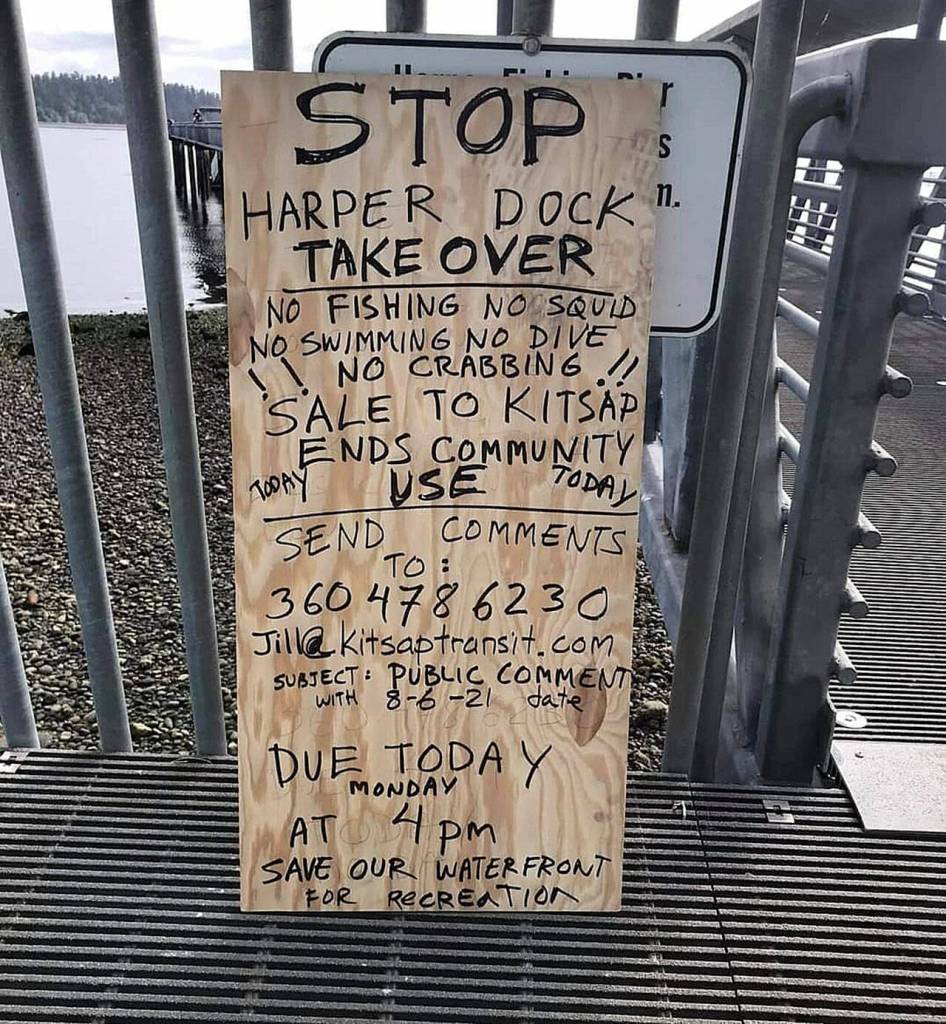 r
s
n.
STOP
HARPER DOCK
TAKE OVER
NO FISHING NO SQUID
NO SWIMMING NO DIVE
!! NO CRABBING !!
SALE TO KITSAP
ENDS COMMUNITY
TODAY USE TODAY
SEND COMMENTS
TO:
360 478 6230
Jill@kitsaptransit.com
SUBJECT: PUBLIC COMMENT
WITH 8-6-21 date
DUE TODAY
MONDAY
AT 4 pm
SAVE OUR WATERFRONT
FOR RECREATION